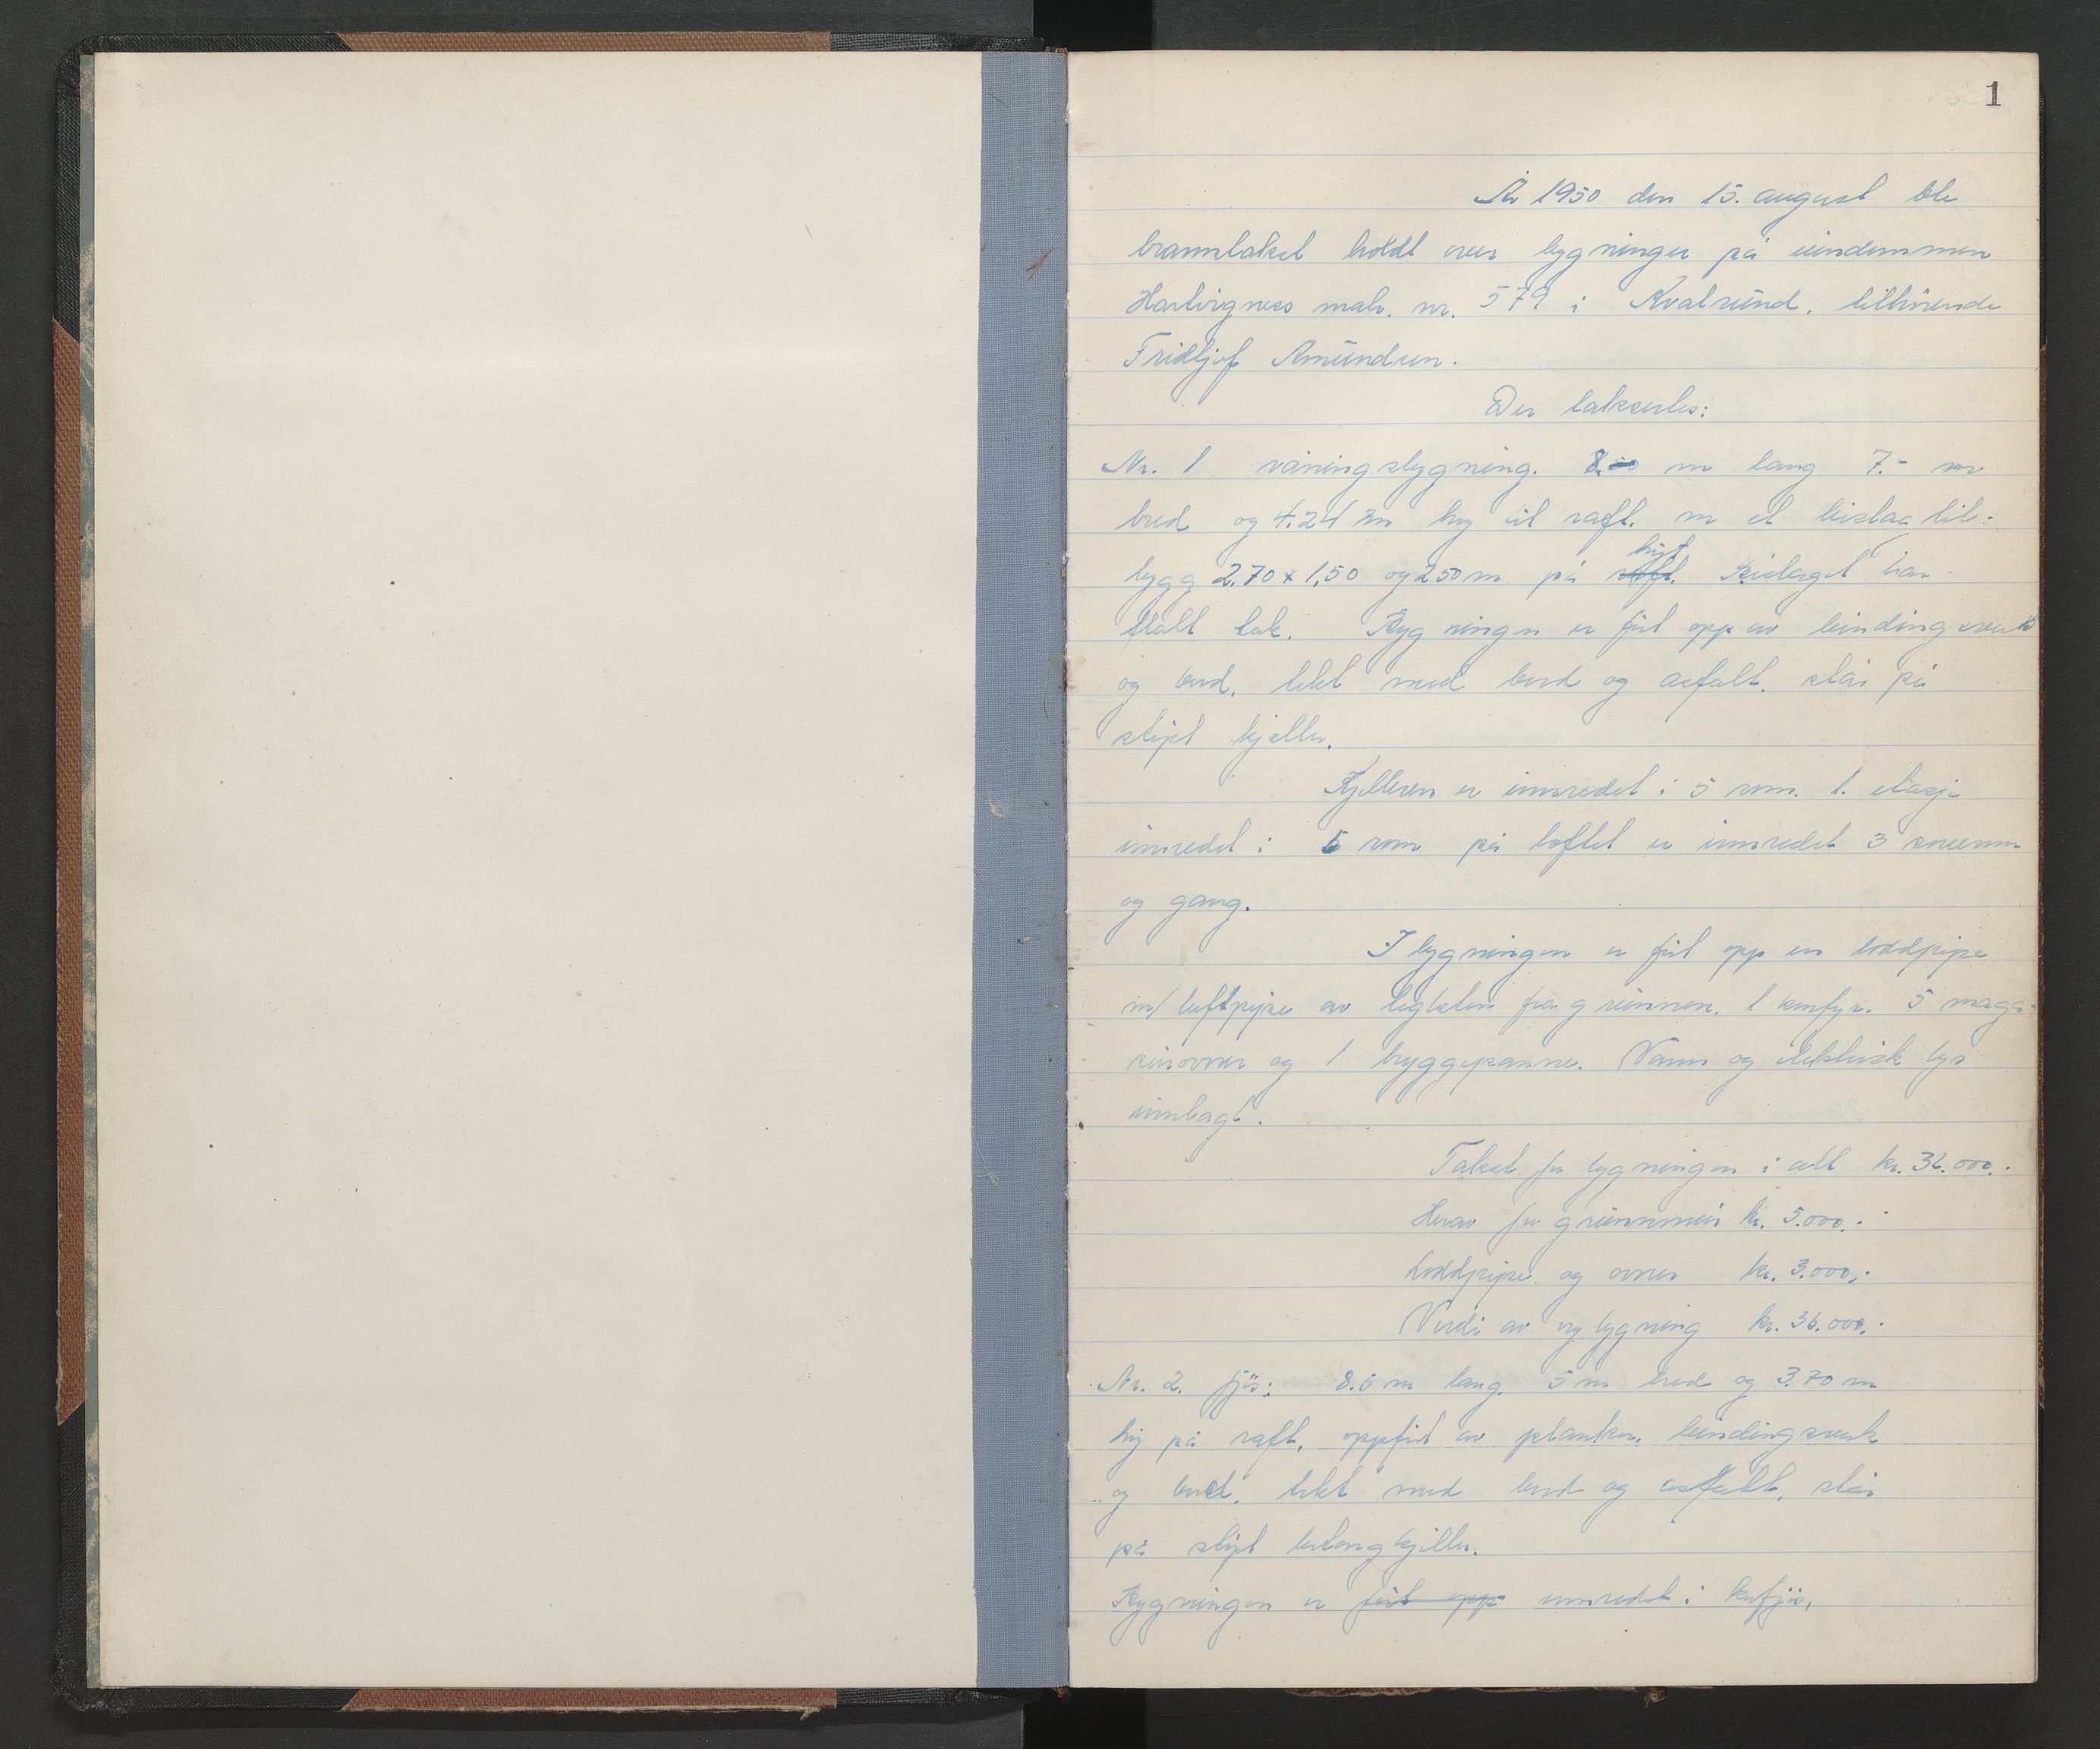 1
År 1950 den 15. august ble
branntakst holdt over bygninger på eiendommen
Hartvignes matr. nr. 579 i Kvalsund, tilhørende
Fridtjof Amundsen.
Der takseres:
Nr. 1 våningsbygning. 8.00 m lang 7.- m
bred og 4.24 m høy til raft. m et bislag til-
bygg 2.70 x 1,50 og 2.50 m på raft. høyt Bislaget har
flatt tak. Bygningen er ført opp av bindingsverk
og bord, tekt med bord og asfalt. står på
støpt kjeller.
Kjelleren er innredet i 5 rom. 1. etasje
innredet i 5 rom på loftet er innredet 3 soverom
og gang.
I bygningen er ført opp en loddpipe
m/ luftpipe av teglsten fra grunnen. 1 komfyr. 5 maga-
sinovner og 1 bryggepanne. Vann og elektrisk lys
innlagt.
Takst for bygningen i alt kr. 36.000.-
Herav for grunnmur kr. 5.000.-
Loddpipe og ovner kr. 3.000,-
Verdi av ny bygning kr. 36.000.-
Nr. 2. fjøs: 8.5 m lang. 5 m bred og 3.70 m
høy på raft, oppført av planker, bindingsverk
og bord. tekt med bord og asfalt, står
på støpt betongkjeller.
Bygningen er ført opp innredet i kufjøs,